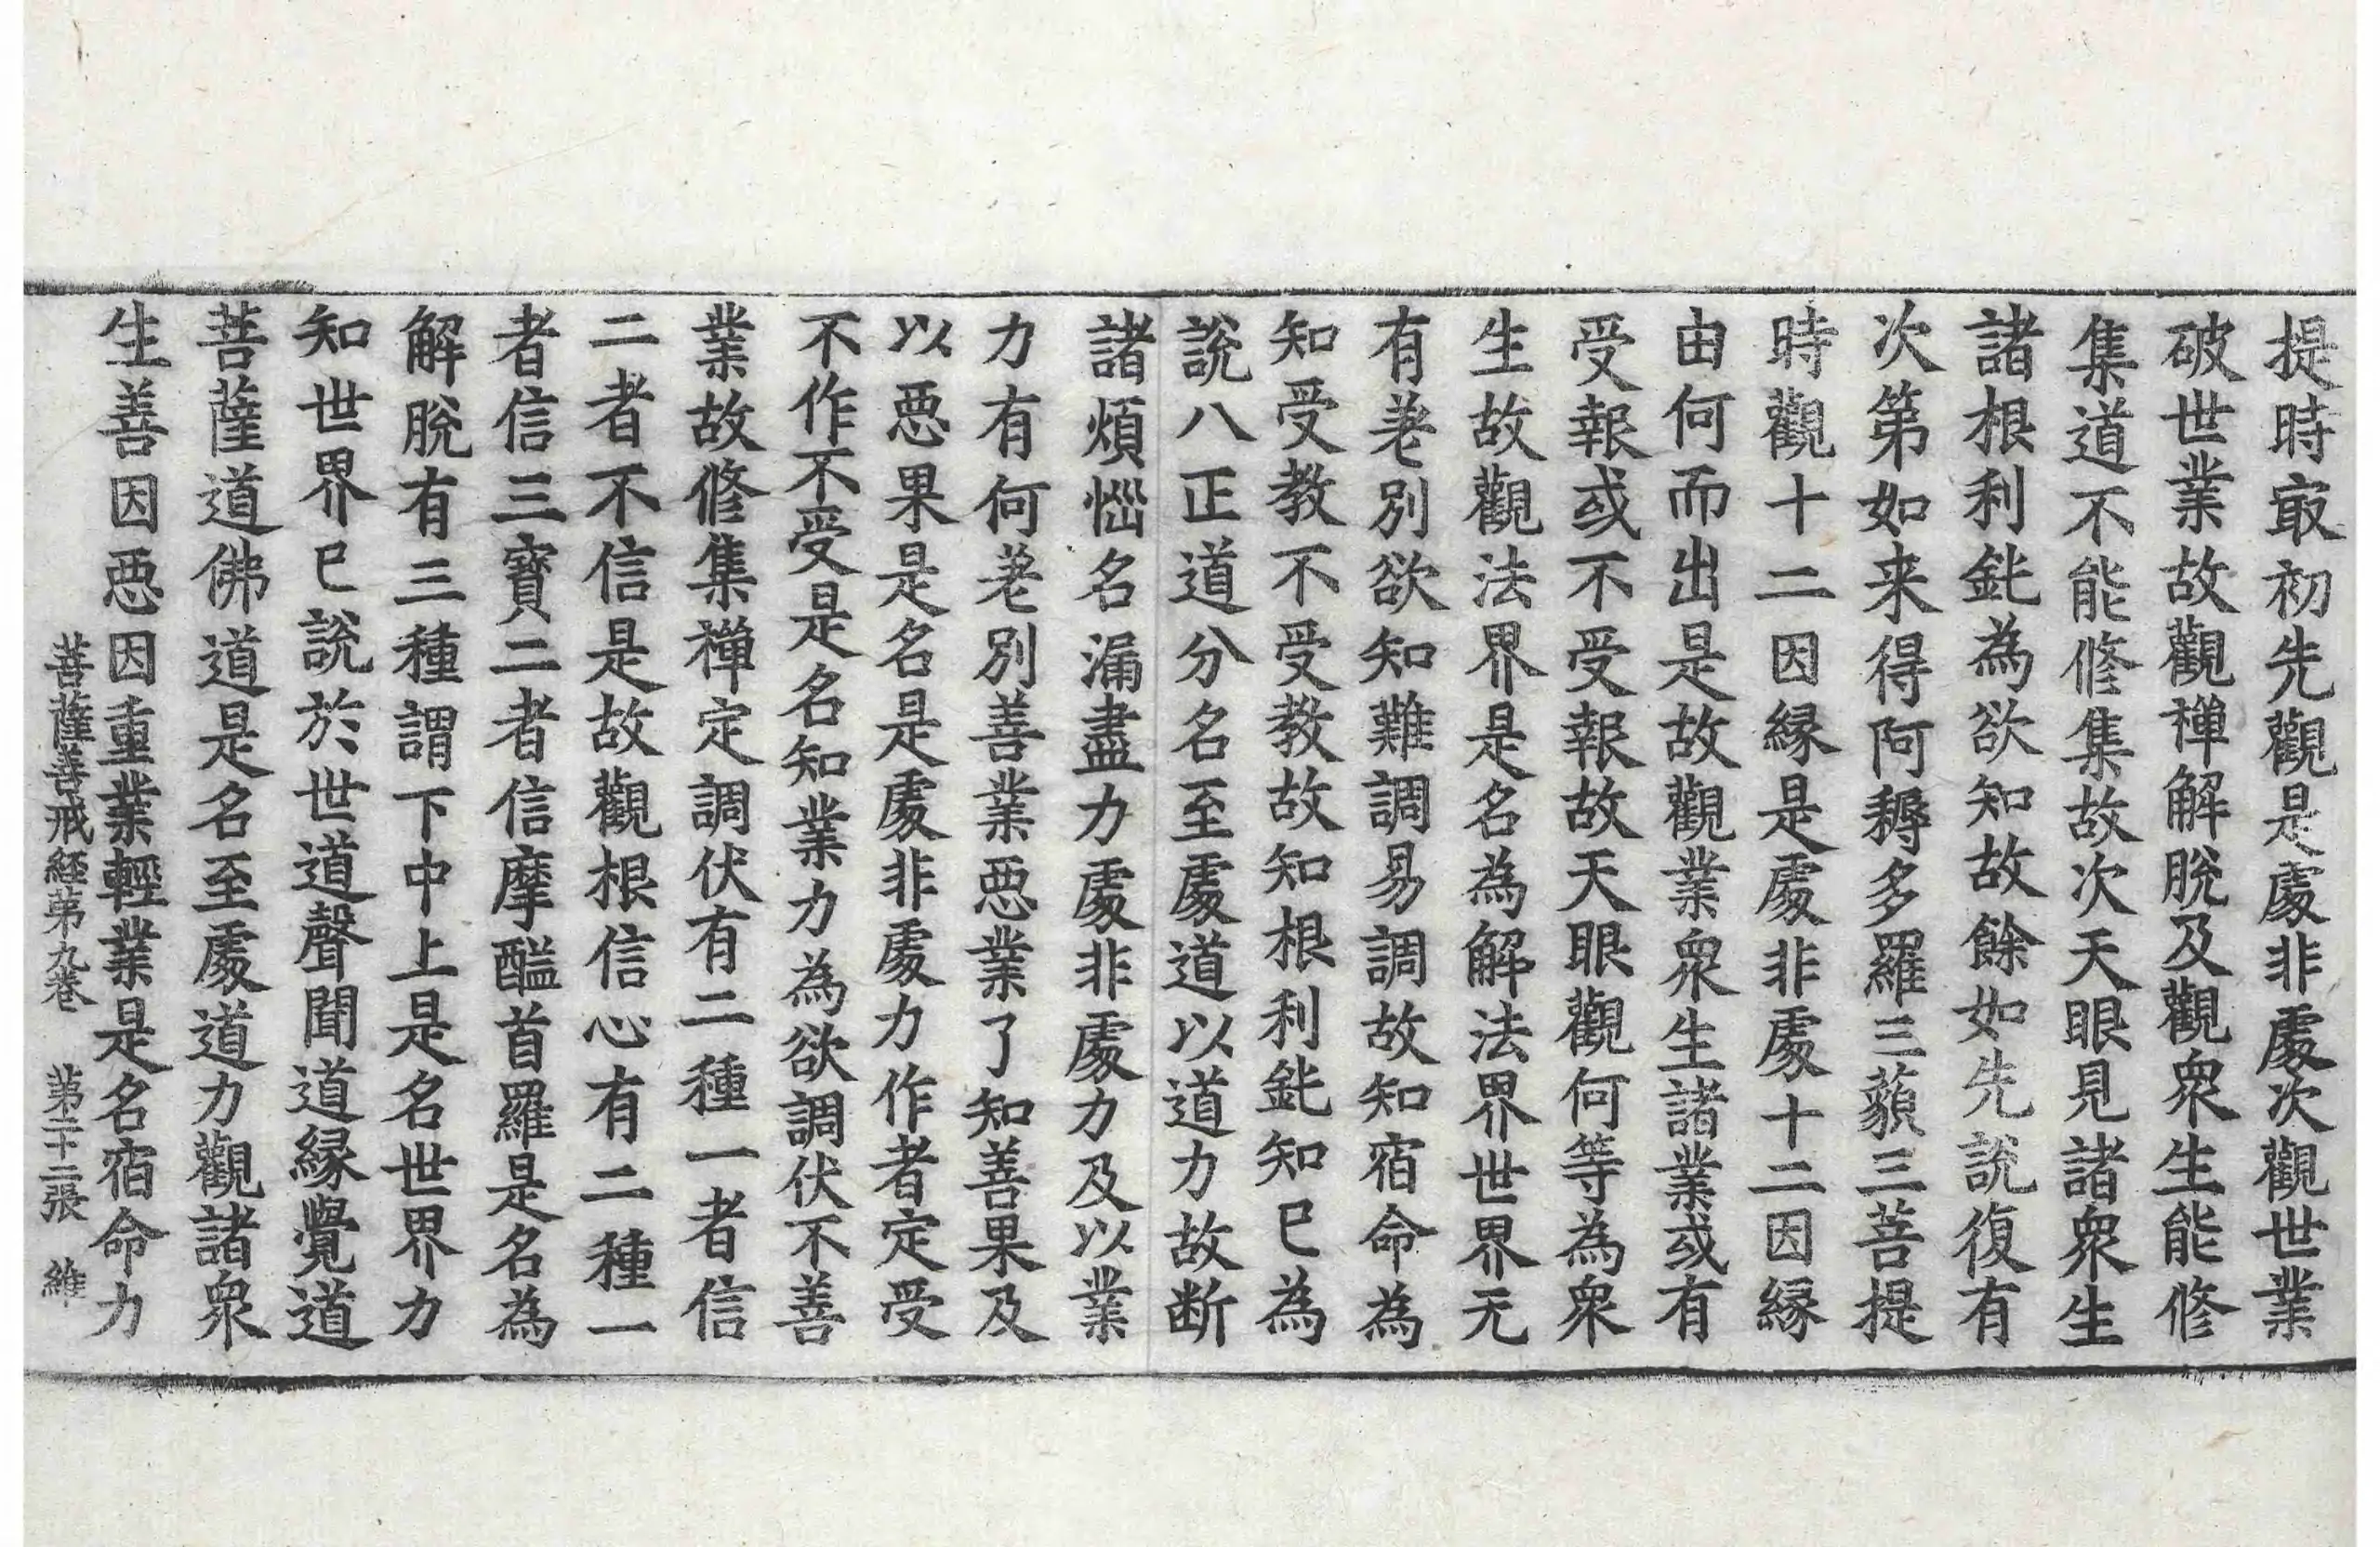 提時㝡初先觀是處非處次觀世業
破世業故觀禪解脫及觀衆生能修
集道不能修集故次天眼見諸衆生
諸根利鈍為欲知故餘如先說復有
次第如来得阿耨多羅三藐三菩提
時觀十二因縁是處非處十二因縁
由何而出是故觀業衆生諸業或有
受報或不受報故天眼觀何等為衆
生故觀法界是名為解法界世界无
有差別欲知難調易調故知宿命為
知受教不受教故知根利鈍知已為
說八正道分名至處道以道力故断
諸煩惱名漏盡力處非處力及以業
力有何差別善業惡業了知善果及
以惡果是名是處非處力作者定受
不作不受是名知業力為欲調伏不善
業故修集禪定調伏有二種一者信
二者不信是故觀根信心有二種一
者信三寶二者信摩醯首羅是名為
解脫有三種謂下中上是名世界力
知世界已說於世道聲聞道縁覺道
菩薩道佛道是名至處道力觀諸衆
生善因惡因重業輕業是名宿命力
菩薩善戒経第九卷　第二十二張　維